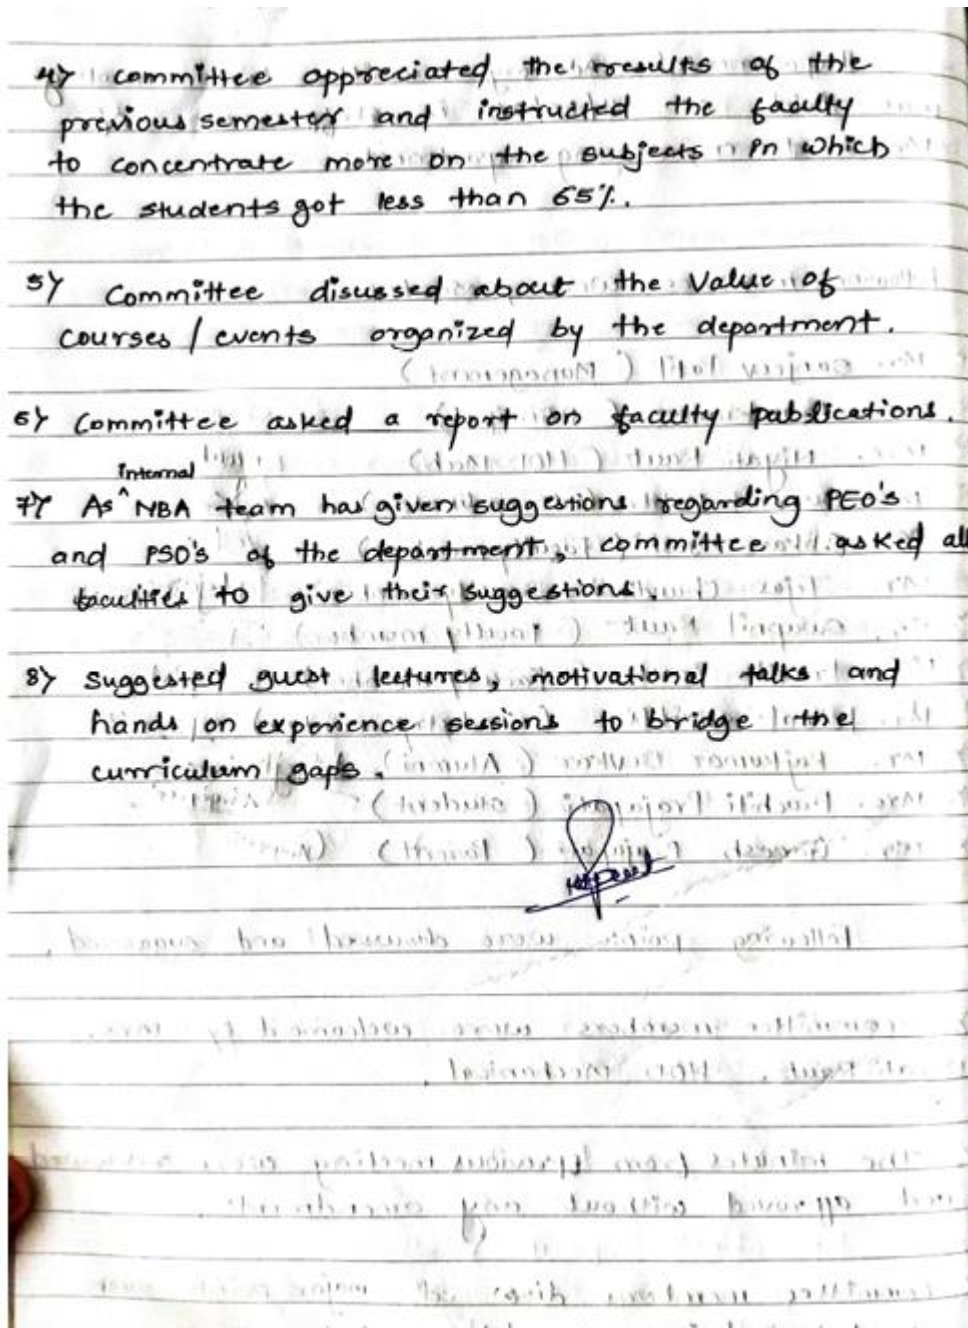 4) Committee appreciated the results of the
previous semester and instructed the faculty
to concentrate more on the subjects in which
the students got less than 65%.
5) Committee disussed about the value of
courses / events organized by the department.
6) Committee asked a report on faculty publications.
internal
7) As ^ NBA team has given suggestions regarding PEO's
and PSO's of the department, committee asked all
faculties to give their suggestions.
8) Suggested guest lectures, motivational talks and
hands on experience sessions to bridge the
curriculum gaps.